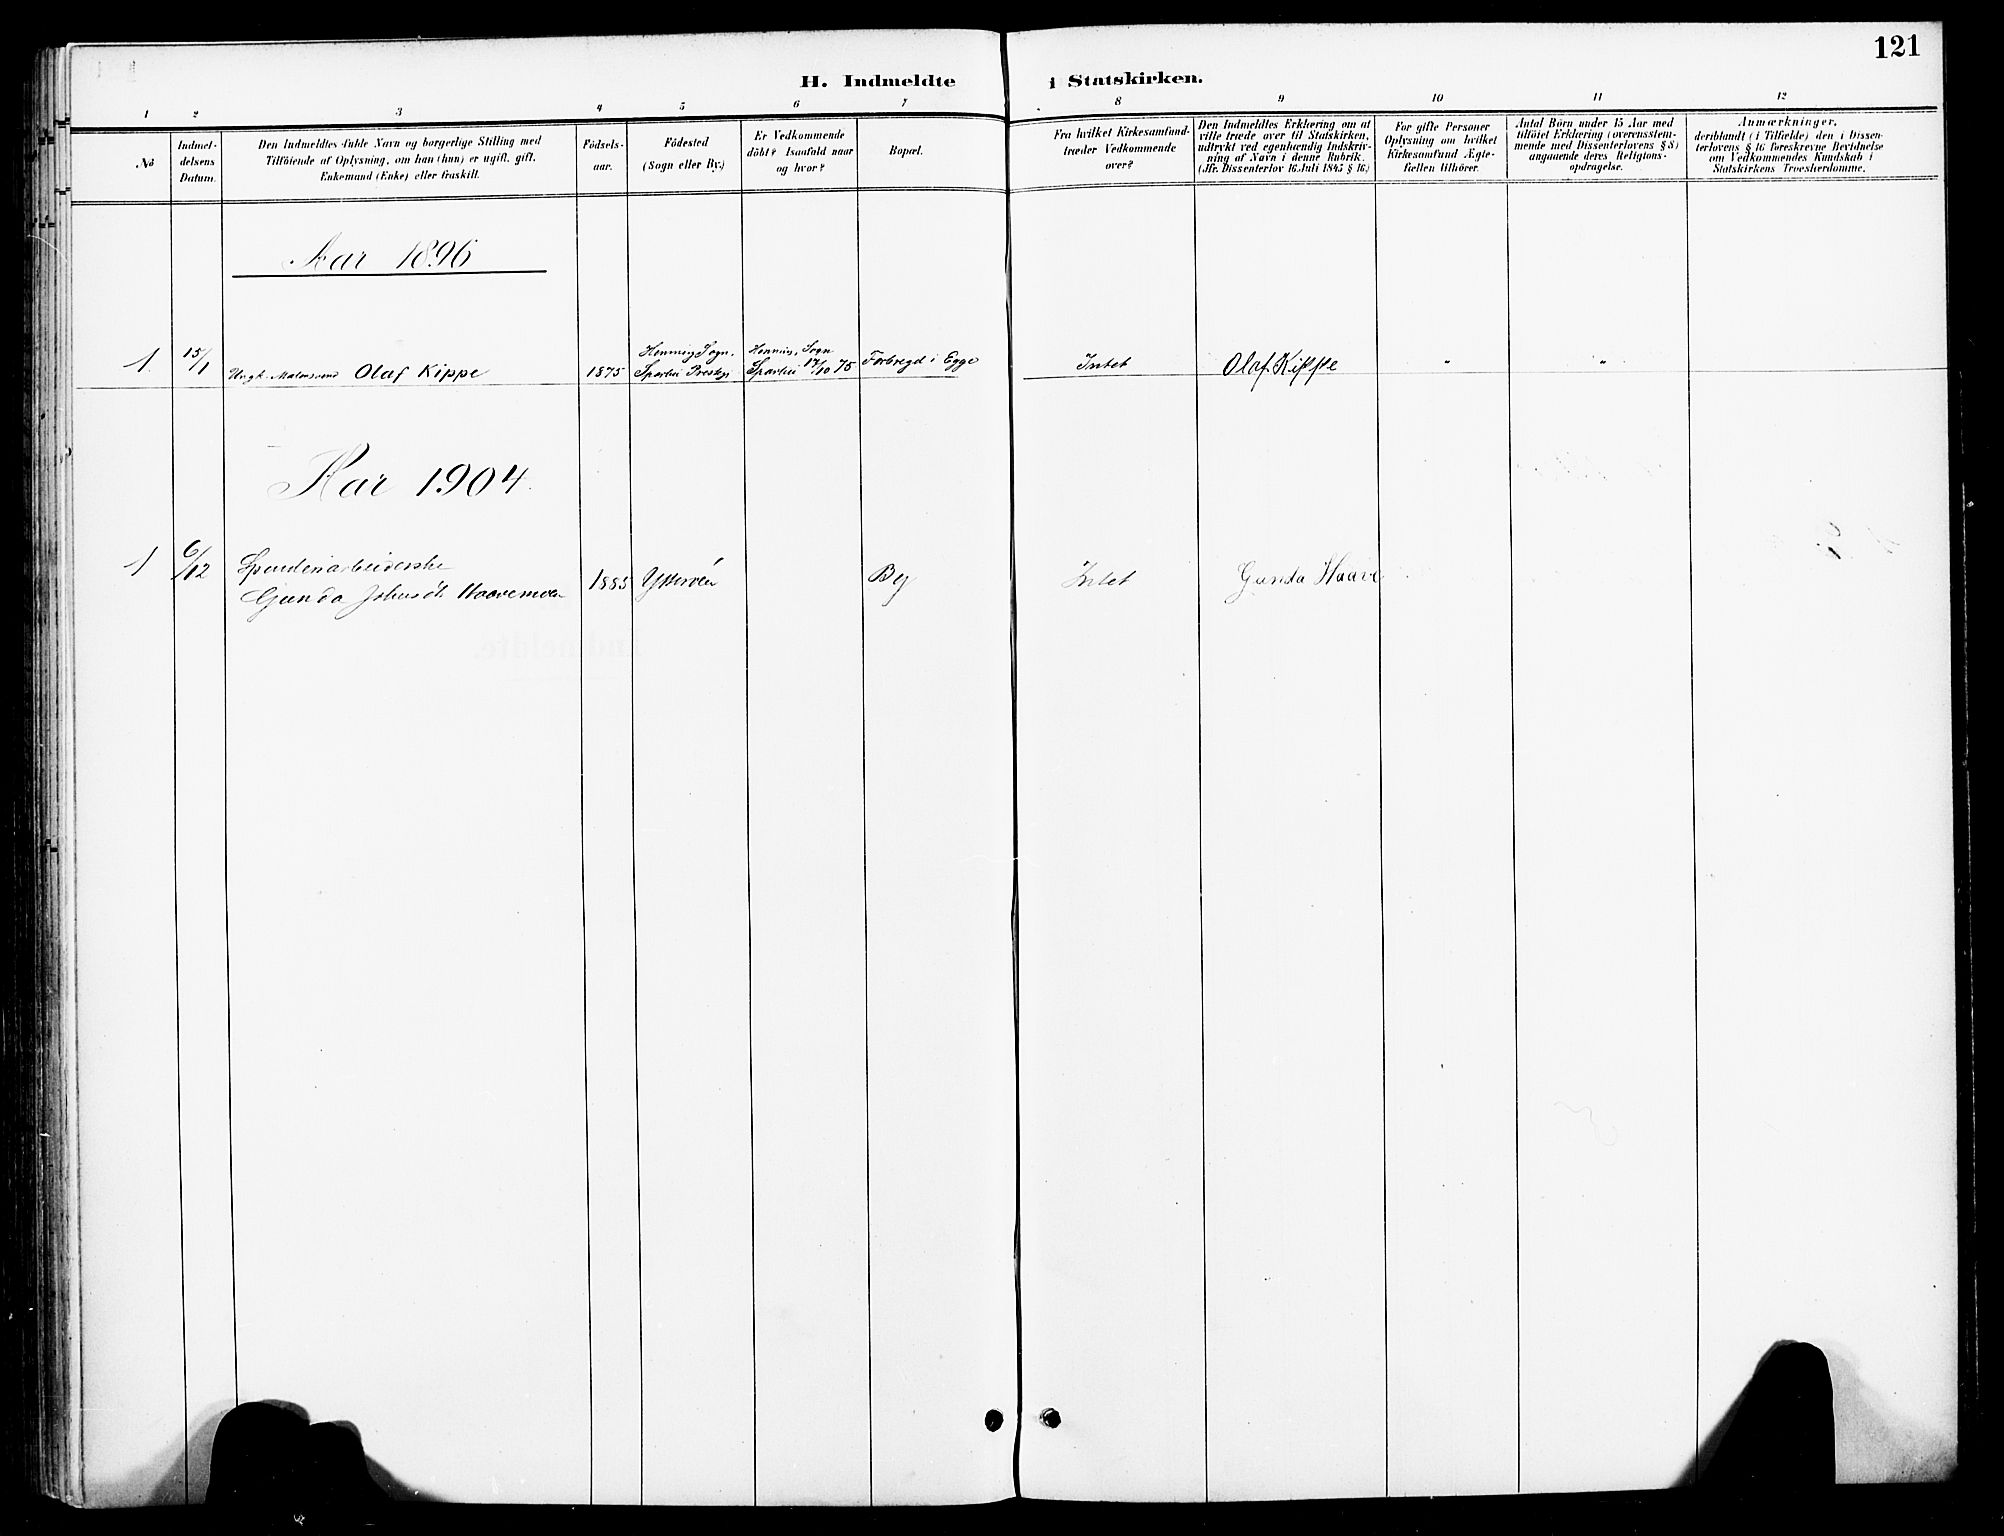 121
H. Indmeldte i Statskirken.
1 2 3 4 5 6 7 8 9 10 11 12
No
Indmel-
delsens
Datum.
Den Indmeldtes fulde Navn og borgerlige Stilling med
Tilföiende af Oplysning, om han (hun) er ugift, gift,
Enkemand (Enke) eller fraskilt.
Födsels-
aar.
Födested
(Sogn eller By.)
Er Vedkommende
döbt? Isaafald naar
og hvor?
Bopæl.
Fra hvilket Kirkesamfund-
træder Vedkommende
over?
Den Indmeldtes Erklæring om at
ville træde over til Statskirken,
udtrykt ved egenhændig Indskriv-
ning af Navn i denne Rubrik.
(Jfr. Dissenterlov 16 Juli 1845 § 16.)
For gifte Personer
Oplysning om hvilket
Kirkesamfund Ægte-
fællen tilhörer.
Antal Börn under 15 Aar med
tilföiet Erklæring (overensstem-
mende med Dissenterlovens § 8)
angaaende deres Religions-
opdragelse.
Anmærkninger,
deriblandt (i Tilfælde) den i Dissen-
terlovens § 16 foreskrevne Bevidnelse
om Vedkommendes Kundskab i
Statskirkens Troesherdomme.
Aar 1896
1 15/1 Ungk. Malersvend Olaf Kippe
1875
Henning Sogn.
Sparbu Prestgj
Henning Sogn
Sparbu 17/10 75
Forbregd i Egge
Intet
Olaf Kippe
" "
Aar 1904.
1 6/12
Gunda Haavemoen
1885 Ytterøen
By
Intet
Gunda Haave
Indmeldte.